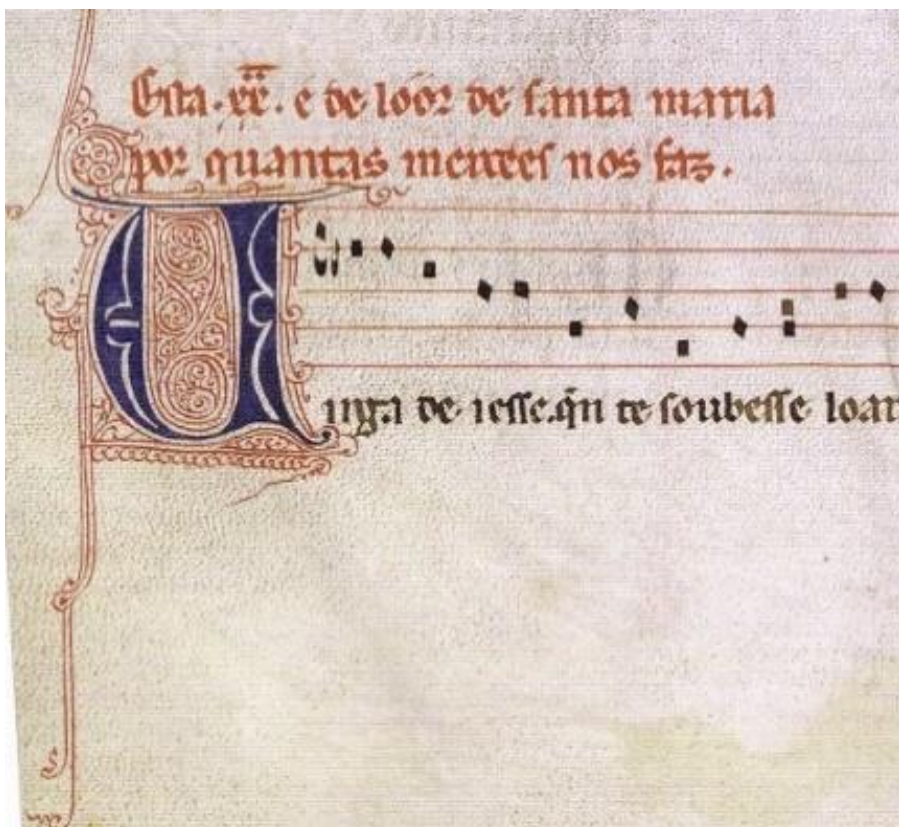 Esta .xx̅. e de loor de santa maria
por quantas merçees nos faz.
Uirga de iesse. q̄n te soubesse loar